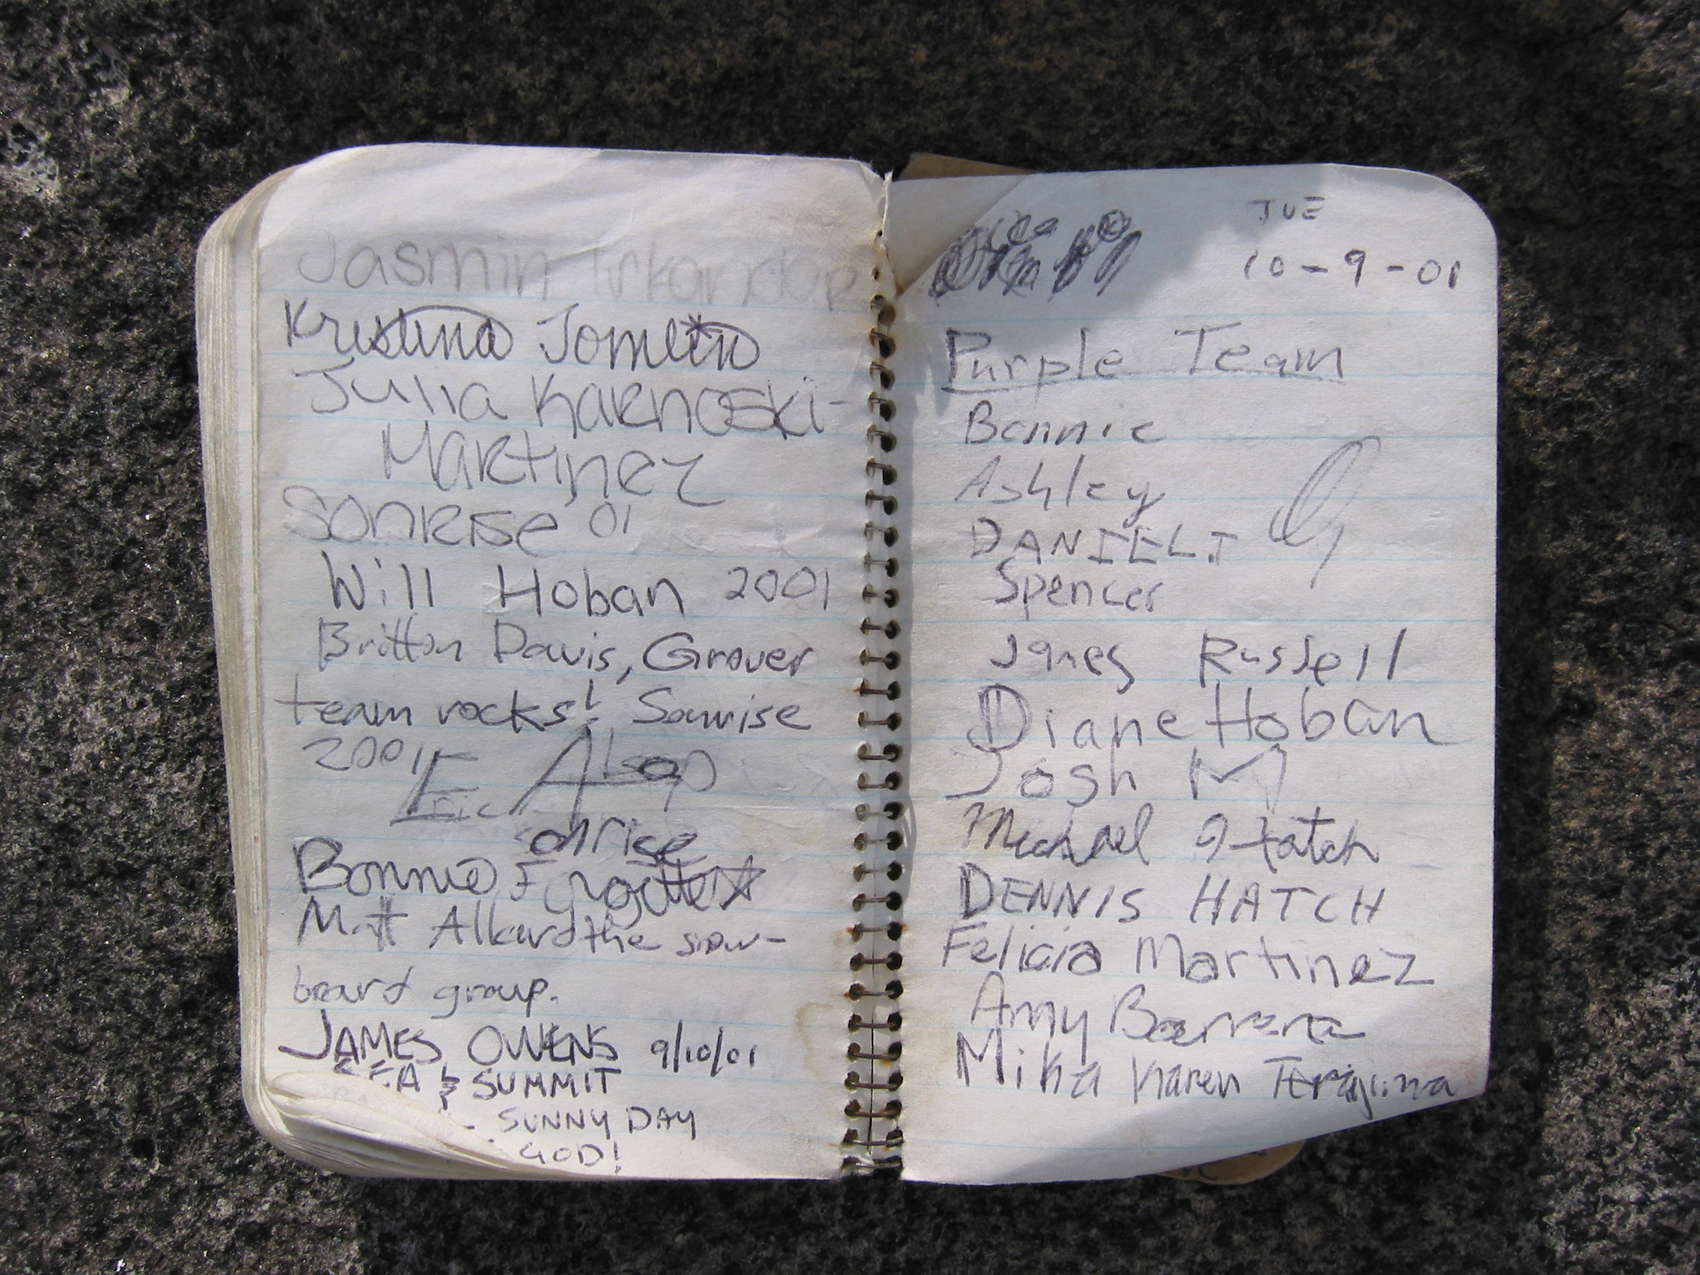 Jasmin
Kristina Tomlin
Julia Karnoski-
Martinez
Sonrise 01
Will Hoban 2001
Britton Davis, Grover
team rocks! Sonrise
2001
Eric Alsop
onrise
Bonnie
Matt the snow-
board group.
JAMES OWENS 9/10/01
SEA & SUMMIT
SUNNY DAY
GOD!
TUE
10-9-01
Purple Team
Bonnie
Ashley
DANIEL J
Spencer
James Russell
Diane Hoban
Josh M
Michael Hatch
DENNIS HATCH
Felicia Martinez
Amy Barrera
Mika Karen